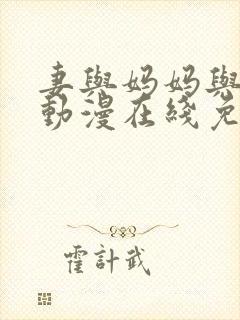 妻與妈妈與
動漫在綫免
霍計武